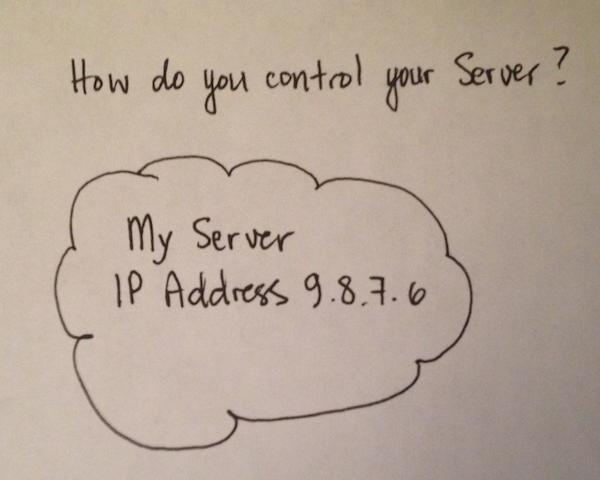 How do you control your Server?
My Server
IP Address 9.8.7.6